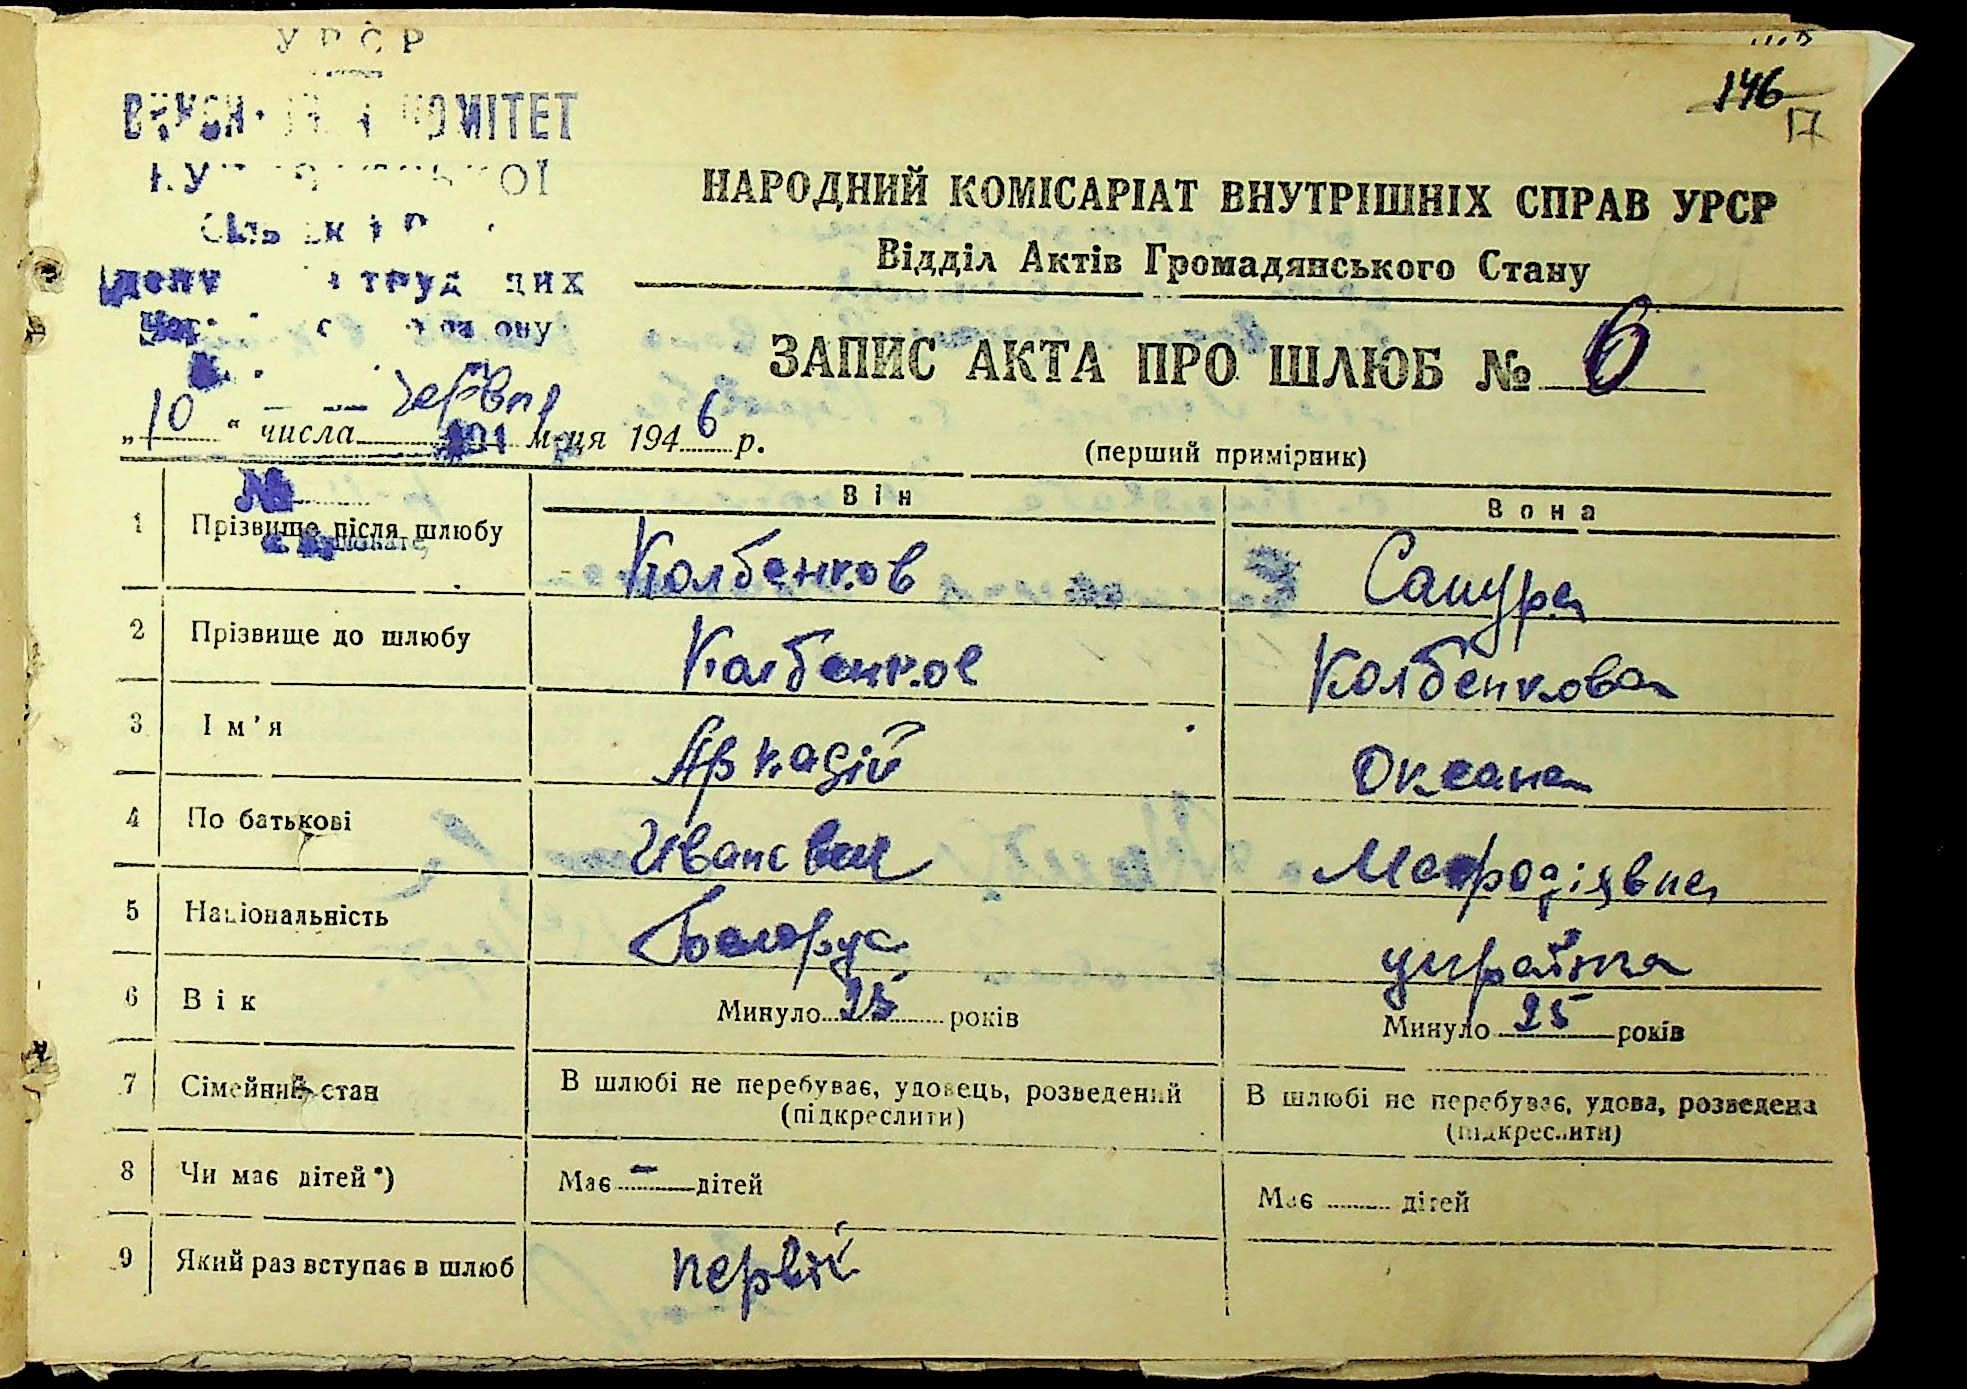 УРСР
КОМІТЕТ
146
17
НАРОДНИЙ КОМІСАРІАТ ВНУТРІШНІХ СПРАВ УРСР
Відділ Актів Громадянського Стану
ЗАПИС АКТА ПРО ШЛЮБ № 6
„10“ числа червня м-ця 1946 р.
(перший примірник)
№
Він Вона
1 Прізвище після шлюбу Колбенков Сапура
2 Прізвище до шлюбу Колбенков Колбенкова
3 Ім'я Аркадій Оксана
4 По батькові Иванович
5 Національність Білорус українка
6 Вік Минуло 25 років Минуло 25 років
7 Сімейний стан В шлюбі не перебуває, удовець, розведений В шлюбі не перебуває, удова, розведена
(підкреслити) (підкреслити)
8 Чи має дітей*) Має — дітей Має дітей
9 Який раз вступає в шлюб первій